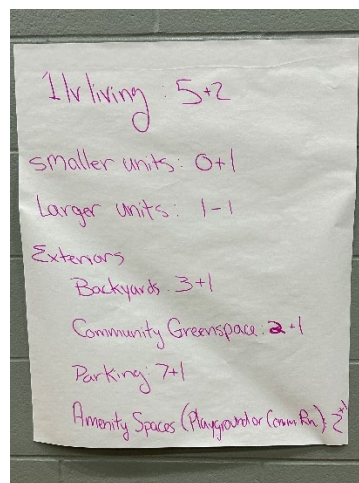 1 lvl living: 5+2
smaller units: 0+1
Larger units: 1-1
Exteriors
Backyards: 3+1
Community Greenspace: 2+1
Parking: 7+1
Amenity Spaces (Playground or Comm Rm) 2+1